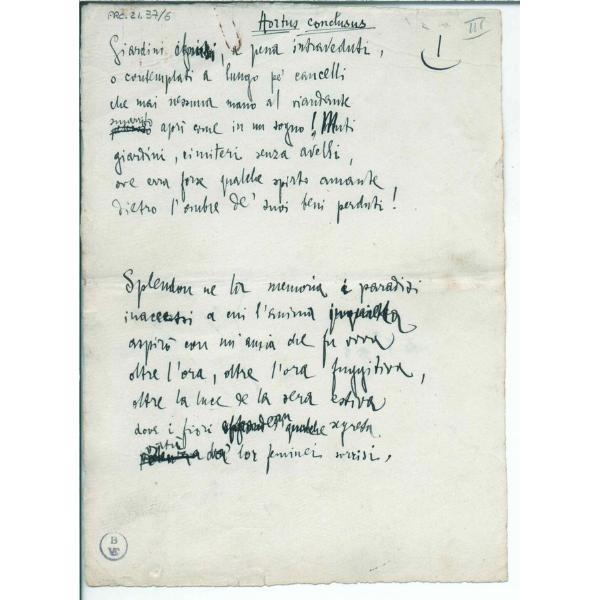 ARC.21.37/6
Hortus conclusus
III
1
Giardini chiusi, a pena intraveduti,
o contemplati a lungo pe' cancelli
che mai nessuna mano al viandante
smarrito aprì come in un sogno! Muti
giardini, cimiteri senza avelli,
ove erra forse qualche spirto amante
dietro l'ombre de' suoi beni perduti!
Splendon ne la memoria i paradisi
inaccessi a cui l'anima inquieta
aspirò con un'ansia che fu viva
oltre l'ora, oltre l'ora fuggitiva,
oltre la luce de la sera estiva
dove i fiori effondean qualche segreta
virtù da' lor feminei sorrisi,
B
VE